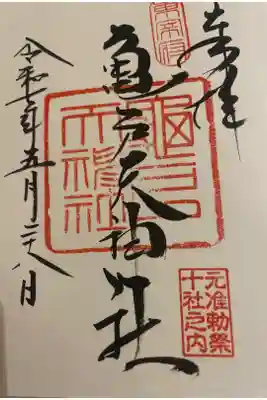 奉拝
東宰府
亀戸天神社
元准勅祭
十社之内
令和 年五月二十八日